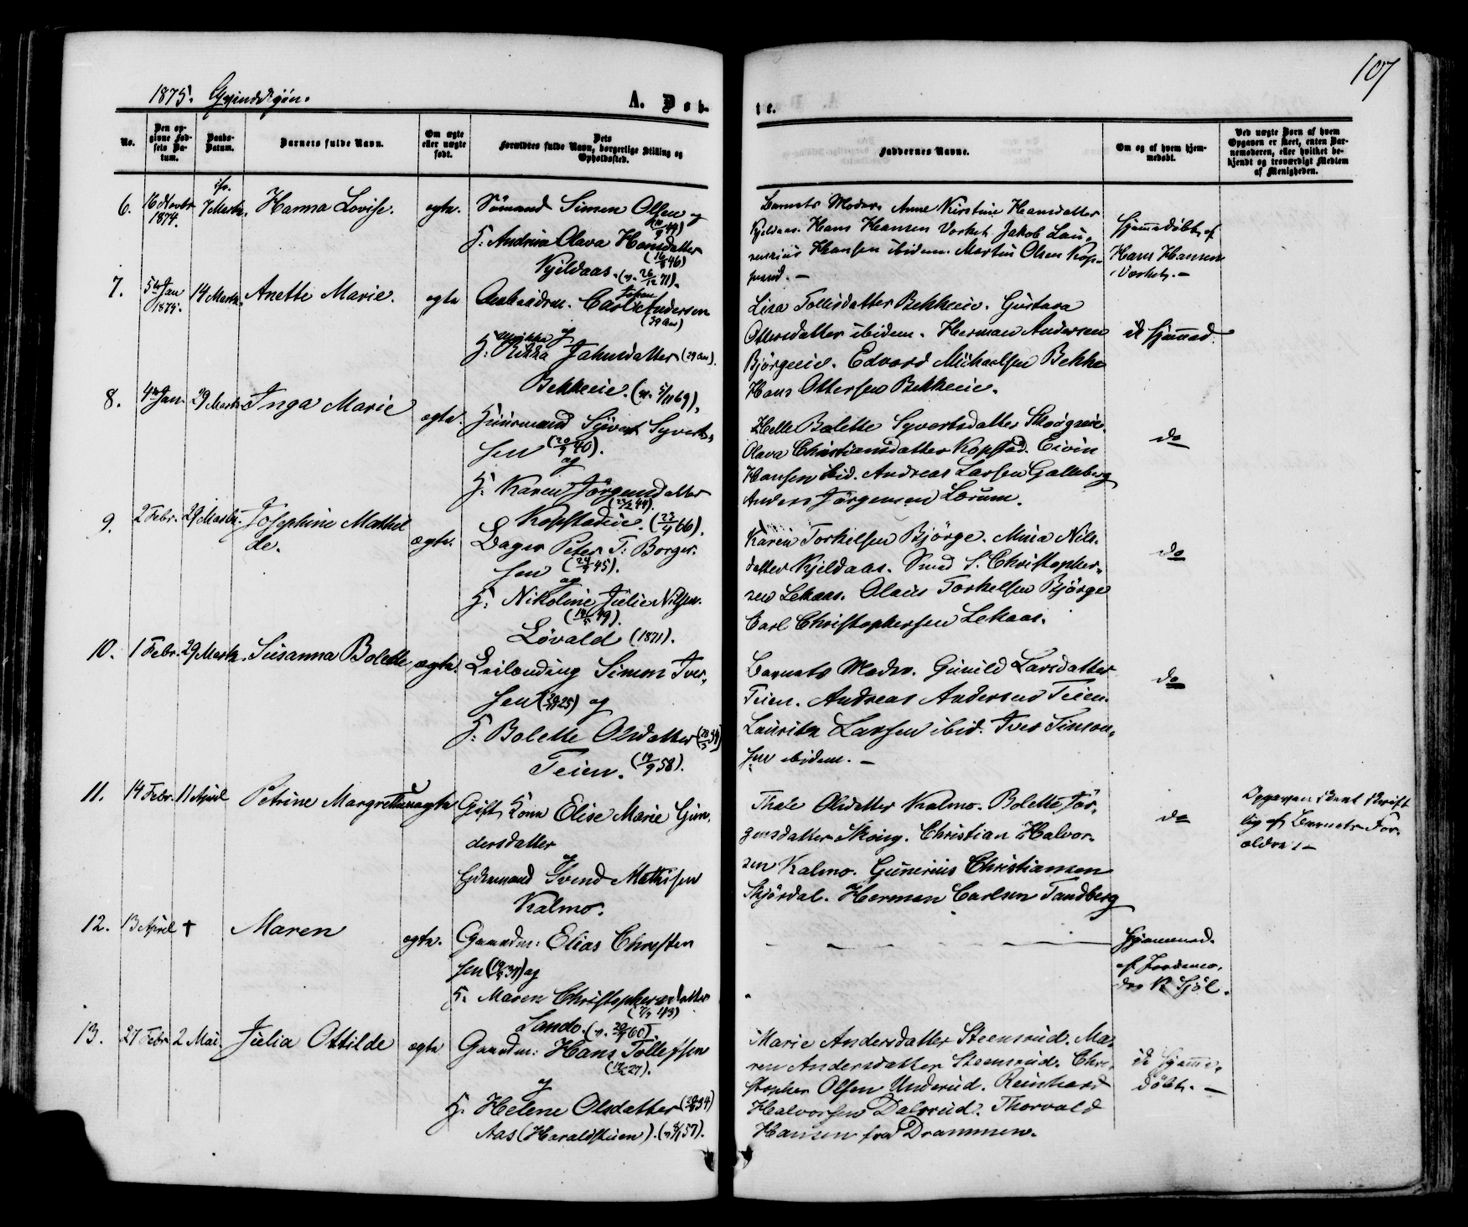 107
1875. Qvindekjøn.
A. Døb-
te.
No.
Den op-
givne Fød-
sels Da-
tum.
Daabs-
Datum.
Barnets fulde Navn.
Om ægte
eller uægte
født.
Dets
Forældres fulde Navn, borgerlige Stilling og
Opholdssted.
Faddernes Navne.
Om og af hvem hjem-
medøbt.
Ved uægte Børn af hvem
Opgaven er skeet, enten Bar-
nemoderen, eller hvilket be-
kjendt og troværdigt Medlem
af Menigheden.
6. 16 Novbr 1874. 7 Marts Hanna Lovise. ægte.
Sømand Simen Olsen og
H: Andrea Olava Hansdatter
Kjeldaas.
Barnets Moder Anne Kirstine Hansdatter
Kjeldaas. Hans Hansen Værket. Jakob Lau-
rentius Hansen ibidem. Martin Olsen Kop-
stad. -
Hjemmedøbt af
Hans Hansen
Værket. -
7. 5te Jan 1874. 14 Marts. Anette Marie. ægte
Carl Andersen
(39 Aar)
H. Rikka Jahnsdatter (29 Aar).
Bekkeeie.
Lisa Tollefsdatter Bekkeeie. Gustava
Ottersdatter ibidem. Herman Andersen
Bjørgeeie. Edvard Mikkaelsen Bekke
Hans Ottersen Bekkeeie.
ei hjemmed.
8. 4de Jan. 29 Marts Inga Marie ægte.
Huusmand Syvert Syvert-
sen og
H: Karen Jørgensdatter
Kopstadeie.
Helle Bolette Syvertsdatter Skougseie.
Olava Christiansdatter Kopstad. Eivin
Hansen ibid. Andreas Larsen Galleberg
Anders Jørgensen Lorum.
do
9. 2 Febr. 29 Marts. Josephine Mathil
de. ægte.
Bager Peter T. Borger-
sen og
H: Nikoline Julie Nilsen.
Løvald (1871).
Karen Torkelsen Bjørge. Maria Nils-
datter Kjeldaas. Smed S. Christopher-
sen Lekaas. Olaus Torkelsen Bjørge
Carl Christophersen Lekaas.
do
10. 1 Febr. 29 Marts. Susanna Bolette ægte.
Leilending Simon Iver-
sen og
H: Bolette Olsdatter
Teien.
Barnets Moder. Gunild Larsdatter
Teien. Andreas Andersen Teien.
Lauritz Larsen ibid. Iver Simon-
sen ibidem. -
do
11. 14 Febr. 11 April Petrine Margrethe uægte
Gift Kone Elise Marie Gun-
dersdatter
og
Svend Mathisen
Kalmo.
Thale Olsdatter Kalmo. Bolette Jør-
gensdatter Skoug. Christian Halvor-
sen Kalmo. Gunerius Christiansen
Skjørdal. Herman Carlsen Tandberg
do
Opgaven skeet skrift
lig af Barnets For-
ældre. -
12. 13 April † Maren ægte.
Gaardm: Elias Christen
sen og
H. Maren Christophersdatter
Sando.
Hjemmed.
af Jordemo-
der K. Sjøl.
13. 27 Febr. 2 Mai. Julia Ottilde ægte
Gaardm: Hans Tollefsen
og
H: Helene Olsdatter
Aas (Haraldstuen).
Marie Andersdatter Steensrud. Ma-
ren Andersdatter Steensrud. Chri-
stopher Olsen Underud. Reinhard
Halvorsen Dalsrud. Thorvald
Hansen fra Drammen.
ei hjemme-
døbt. -